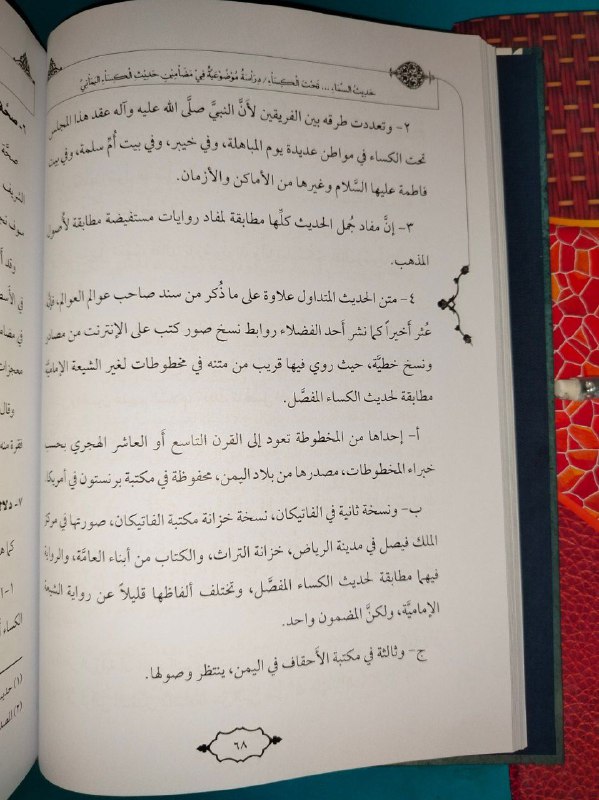 حديث السماء ... تحت الكساء / دراسة موضوعية في مضامين حديث الكساء اليماني
٢- وتعددت طرقه بين الفريقين لأنَّ النبيَّ صلَّى الله عليه وآله عقد هذا المجلس
تحت الكساء في مواطن عديدة يوم المباهلة، وفي خيبر، وفي بيت أُمِّ سلمة، وفي بيت
فاطمة عليها السَّلام وغيرها من الأماكن والأزمان.
٣- إنَّ مفاد جُمل الحديث كلِّها مطابقة لمفاد روايات مستفيضة مطابقة لأُصول
المذهب.
٤- متن الحديث المتداول علاوة على ما ذُكر من سند صاحب عوالم العوالم، فإنَّه
عُثر أخيراً كما نشر أحد الفضلاء روابط نسخ صور كتب على الإنترنت من مصادر
ونسخ خطيَّة، حيث روي فيها قريب من متنه في مخطوطات لغير الشيعة الإماميَّة
مطابقة لحديث الكساء المفصَّل.
أ- إحداها من المخطوطة تعود إلى القرن التاسع أو العاشر الهجري بحسب
خبراء المخطوطات، مصدرها من بلاد اليمن، محفوظة في مكتبة برنستون في أمريكا.
ب- ونسخة ثانية في الفاتيكان، نسخة خزانة مكتبة الفاتيكان، صورتها في مركز
الملك فيصل في مدينة الرياض، خزانة التراث، والكتاب من أبناء العامَّة، والرواية
فيهما مطابقة لحديث الكساء المفصَّل، وتختلف ألفاظها قليلاً عن رواية الشيعة
الإماميَّة، ولكنَّ المضمون واحد.
ج- وثالثة في مكتبة الأحقاف في اليمن، ينتظر وصولها.
٦٨